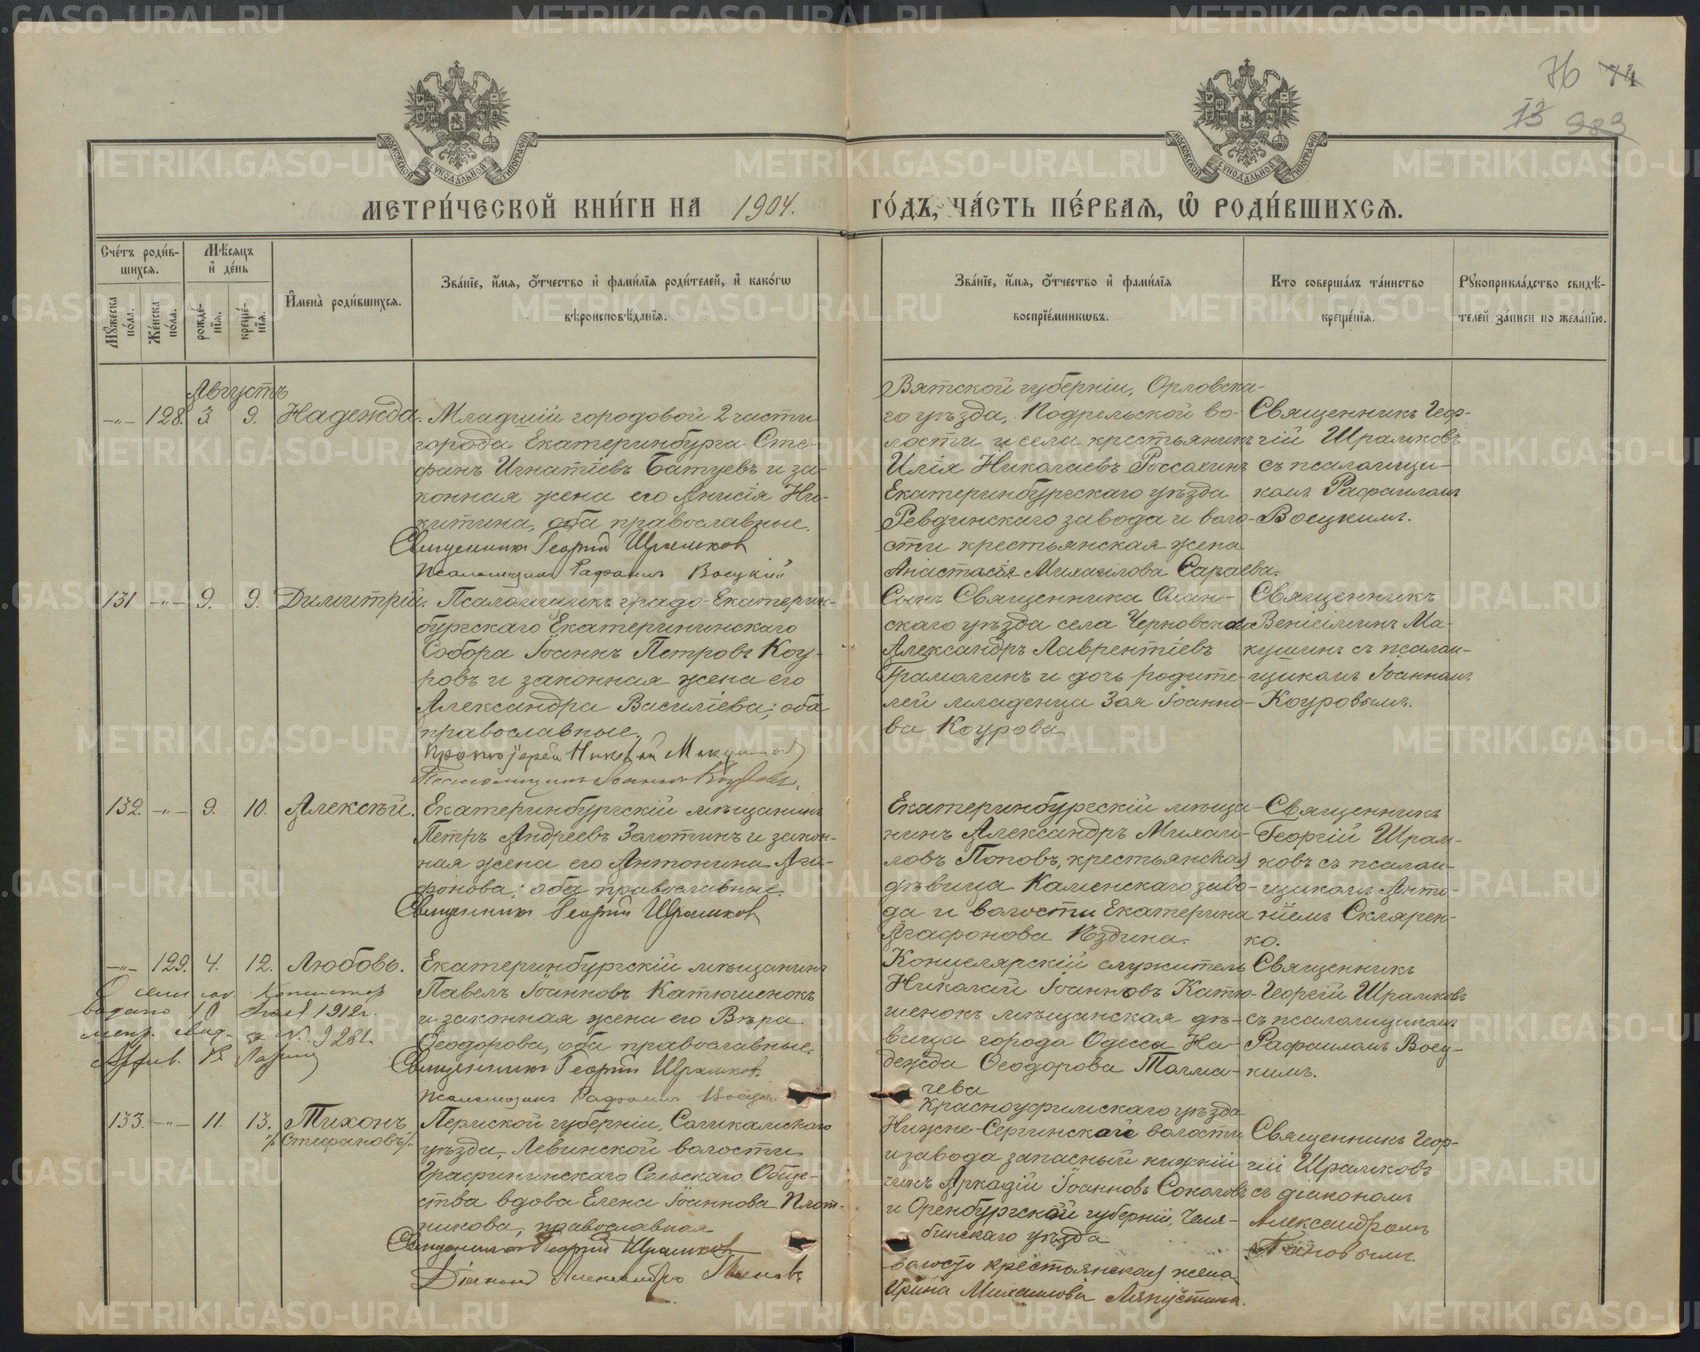 76 74
13 983
МЕТРИ́ЧЕСКОЙ КНИ́ГИ НА 1904. ГО́ДЪ, ЧА́СТЬ ПЕ́РВАЯ, Ѿ РОДИ́ВШИХСЯ.
Сче́тъ роди́в-
шихся.
Мѣсяцъ
и де́нь
Мꙋжеска по́ла.
Же́нска по́ла.
рожде́-
нїя.
креще́-
нїя.
Имена̀ роди́вшихся.
Зва́нїе, и́мя, о́тчество и фами́лїя роди́телей, и како́гѡ
вѣроисповѣ́данїя.
Зва́нїе, и́мя, о́тчество и фами́лїя
воспрїе́мникѡвъ.
Кто соверша́лъ та́инство
креще́нїя.
Рꙋкоприкла́дство свидѣ́-
телей за́писи по жела́нїю.
Августъ
-„- 128. 3. 9. Надежда.
Младшій городовой 2 части
города Екатеринбурга Сте-
фанъ Игнатіевъ Батуевъ и за-
конная жена его Анисія Ни-
китина, оба православные.
Священникъ Георгій Шрамковъ
Псаломщикъ Рафаилъ Воецкій
Вятской губерніи, Орловска-
го уѣзда, Подрельской во-
лости и села крестьянинъ
Илія Николаевъ Россохинъ
Екатеринбургскаго уѣзда
Ревдинскаго завода и воло-
сти крестьянская жена
Анастасія Михаилова Сараева.
Священникъ Геор-
гій Шрамковъ
съ псаломщи-
комъ Рафаиломъ
Воецкимъ.
131 -„- 9. 9. Димитрій.
Псаломщикъ градо-Екатерин-
бургскаго Екатерининскаго
Собора Іоаннъ Петровъ Коу-
ровъ и законная жена его
Александра Василіева; оба
православные.
Протоіерей Николай
Псаломщикъ Іоаннъ Коуровъ.
Сынъ Священника Охан-
скаго уѣзда села Черновскаго
Александръ Лаврентіевъ
Грамолинъ и дочь родите-
лей младенца Зоя Іоанно-
ва Коурова
Священникъ
Веніаминъ Ма-
кушинъ съ псалом-
щикомъ Іоанномъ
Коуровымъ.
132. -„- 9. 10. Алексѣй.
Екатеринбургскій мѣщанинъ
Петръ Андреевъ Золотинъ и закон-
ная жена его Антонина Ага-
фонова; оба православные.
Священникъ Георгій Шрамковъ
Екатеринбургскій мѣща-
нинъ Александръ Михаи-
ловъ Поповъ, крестьянская
дѣвица Каменскаго заво-
да и волости Екатерина
Агафонова
Священникъ
Георгій Шрам-
ковъ съ псалом-
щикомъ Анто-
ніемъ Скларен-
ко.
-„- 129. 4. 12. Любовь.
выдано 10 1912 г.
№ 9281
Екатеринбургскій мѣщанинъ
Павелъ Іоанновъ Катюшенокъ
и законная жена его Вѣра
Ѳеодорова, оба православные.
Священникъ Георгій Шрамковъ
Псаломщикъ Рафаилъ Воецкій
Концелярскій служитель
Николай Іоанновъ Катю-
шенокъ мѣщанская дѣ-
вица города Одессы На-
дежда Ѳеодорова Толма-
чева
Священникъ
Георгій Шрамковъ
съ псаломщикомъ
Рафаиломъ Воец-
кимъ.
133. -„- 11. 13. Тихонъ
/Стефановъ/.
Пермской губерніи, Соликамскаго
уѣзда, Левинской волости
Графининскаго Сельскаго Обще-
ства вдова Елена Іоаннова Плот-
никова, православная
Священникъ Георгій Шрамковъ
Діаконъ Александръ Пановъ
Красноуфимскаго уѣзда
Нижне-Сергинской волости
и завода запасный нижній
чинъ Аркадій Іоанновъ Соколовъ
и Оренбургской губерніи, Челя-
бинскаго уѣзда
волости крестьянская жена
Ирина Михаилова Ляпустина.
Священникъ Геор-
гій Шрамковъ
съ діакономъ
Александромъ
Пановымъ
METRIKI.GASO-URAL.RU